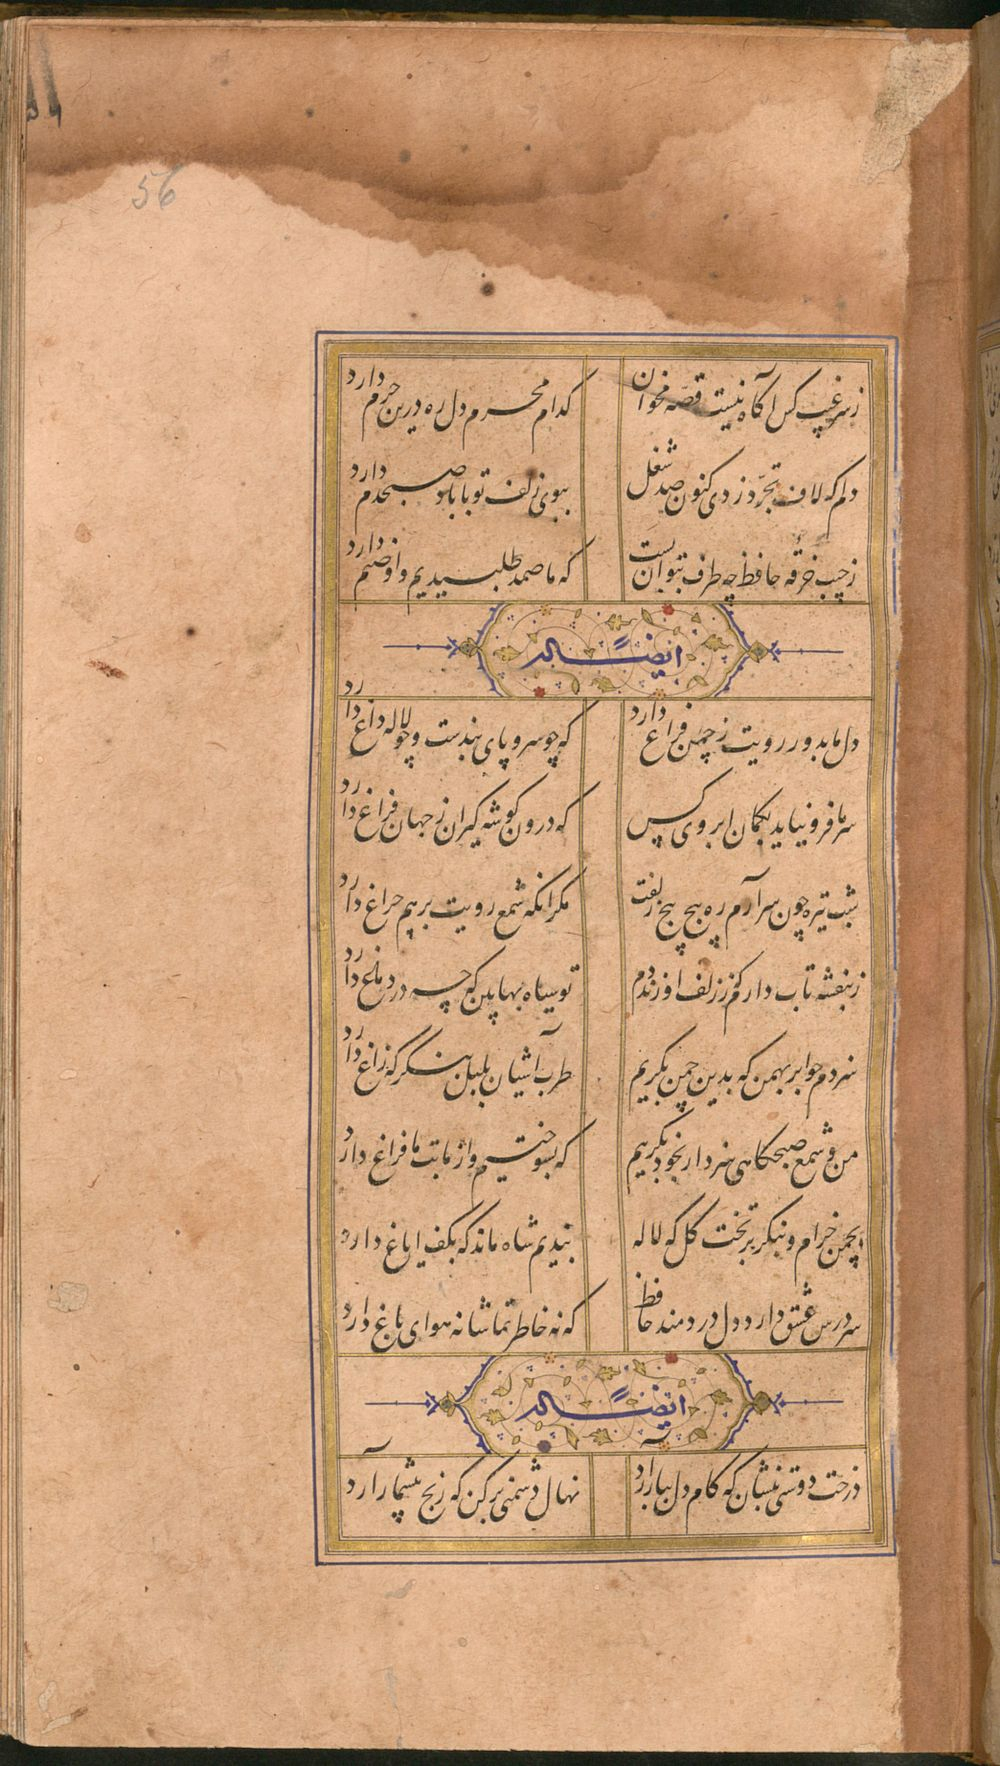 56
ز سر غیب کس آگاه نیست قصه مخوان کدام محرم دل ره درین حرم دارد
دلم که لاف تجرد زدی کنون صد شغل ببوی زلف تو با باد صبحدم دارد
ز جیب خرقه حافظ چه طرف بتوان بست که ما صمد طلبیدیم و او صنم دارد
ایضاً له
دل ما بدور رویت ز چمن فراغ دارد که چو سرو پای بندست و چو لاله داغ دارد
سر ما فرو نیاید بکمان ابروی کس که درون گوشه گیران ز جهان فراغ دارد
شب تیره چون سر آرم ره پیچ پیچ زلفت مگر آنکه شمع رویت برهم چراغ دارد
ز بنفشه تاب دارم کز زلف او زند دم تو سیاه بها ببین که چه در دماغ دارد
سزدم چو ابر بهمن که بدین چمن بگریم طرب آشیان بلبل بنگر که زاغ دارد
من و شمع صبحگاهی سزد ار بخود بگریم که بسوختیم و از ما بت ما فراغ دارد
بچمن خرام و بنگر بر تخت گل که لاله بندیم شاه ماند که بکف ایاغ دارد
سر درس عشق دارد دل دردمند حافظ که نه خاطر تماشا نه هوای باغ دارد
ایضاً له
درخت دوستی بنشان که کام دل ببار آرد نهال دشمنی برکن که رنج بیشمار آرد